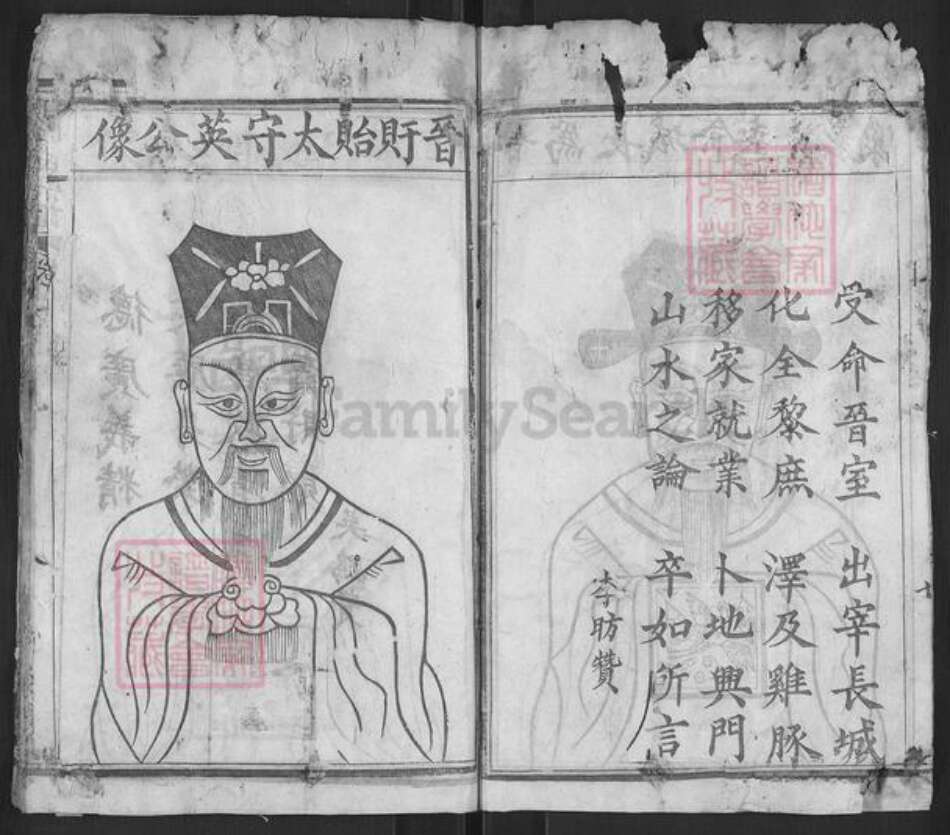 受命晉室 出宰長城
化全黎庶 澤及雞豚
移家就業 卜地興門
山水之論 卒如所言
李昉贊
晉盱貽太守英公像
FamilySearch